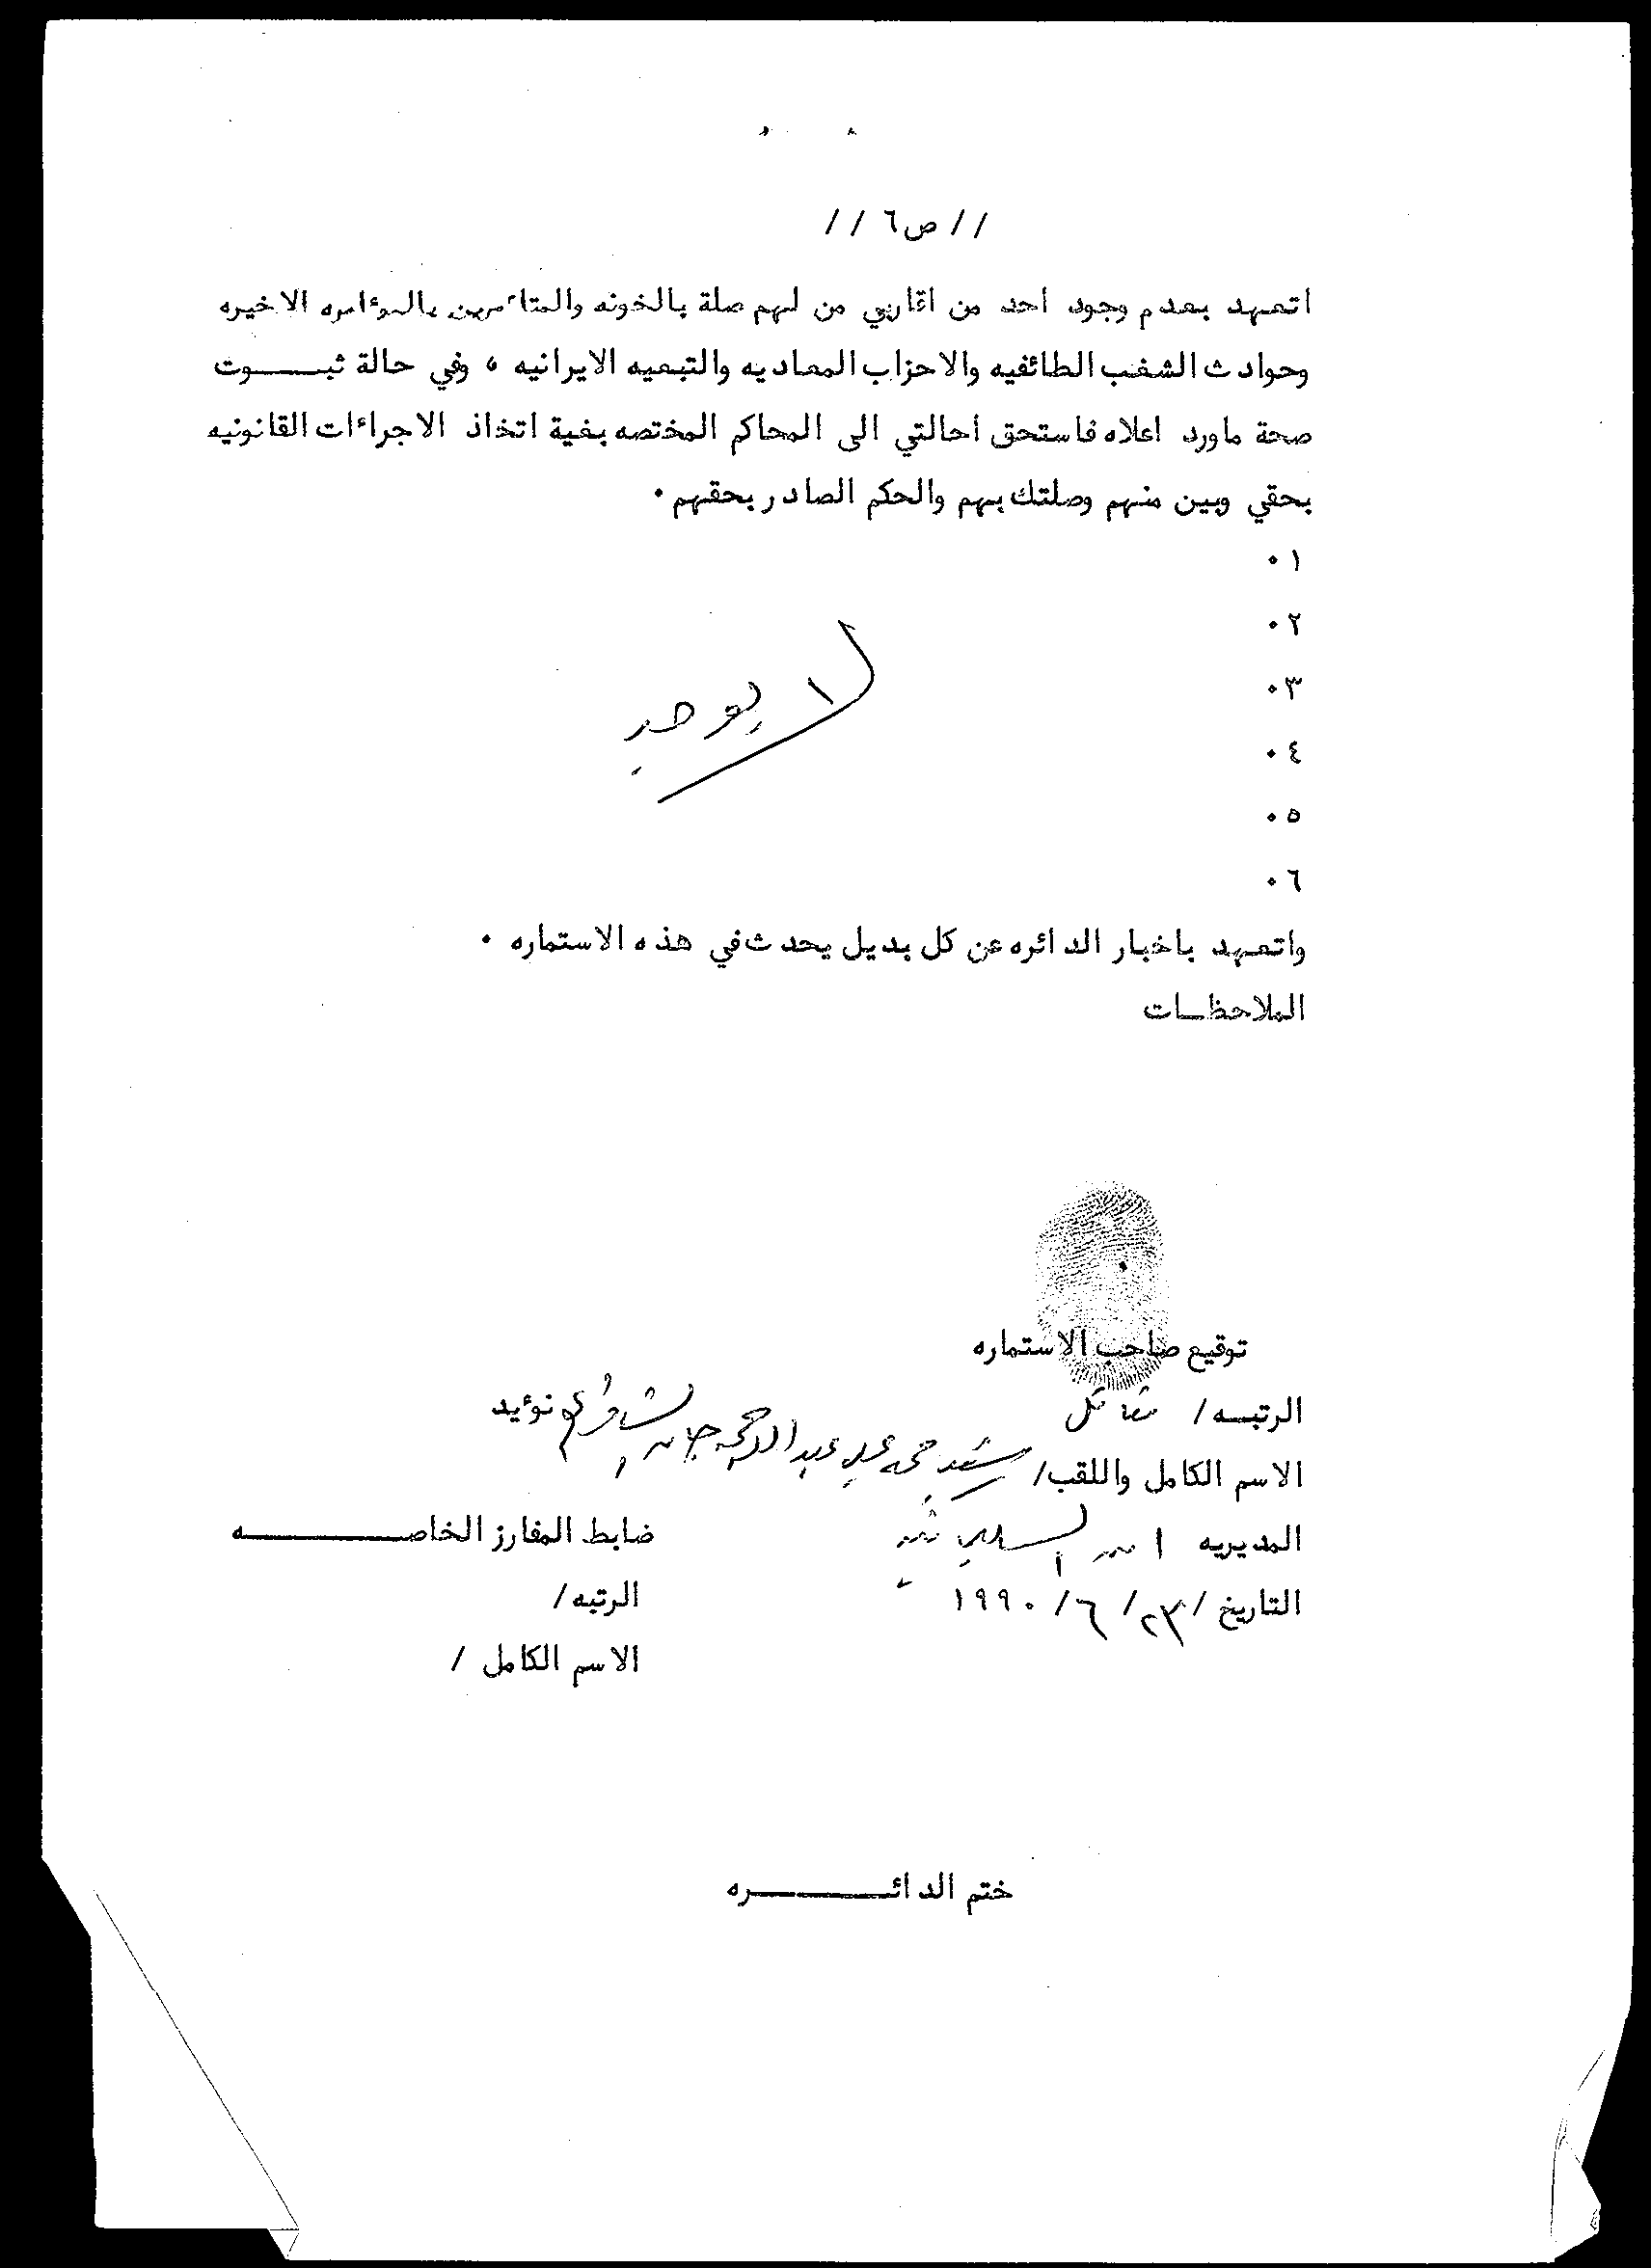 // ص٦ //
اتعهد بعدم وجود احد من اقاربي من لهم صلة بالخونه والمتآمرين بالمؤامره الاخيره
وحوادث الشغب الطائفيه والاحزاب المعاديه والتبعيه الايرانيه ، وفي حالة ثبـــوت
صحة ماورد اعلاه فاستحق احالتي الى المحاكم المختصه بغية اتخاذ الاجراءات القانونيه
بحقي وبين منهم وصلتك بهم والحكم الصادر بحقهم .
١ .
٢ .
٣ .
لا يوجد
٤ .
٥ .
٦ .
واتعهد باخبار الدائره عن كل بديل يحدث في هذه الاستماره .
الملاحظـات
توقيع صاحب الاستماره
الرتبــه / مقاتل
نؤيد
الاسم الكامل واللقب/ محمد علي عبد الرحمن
المديريه امن السليمانية
ضابط المفارز الخاصــــــه
التاريخ / ٢٣ / ٦ / ١٩٩٠
الرتبه /
الاسم الكامل /
ختم الدائــــــره